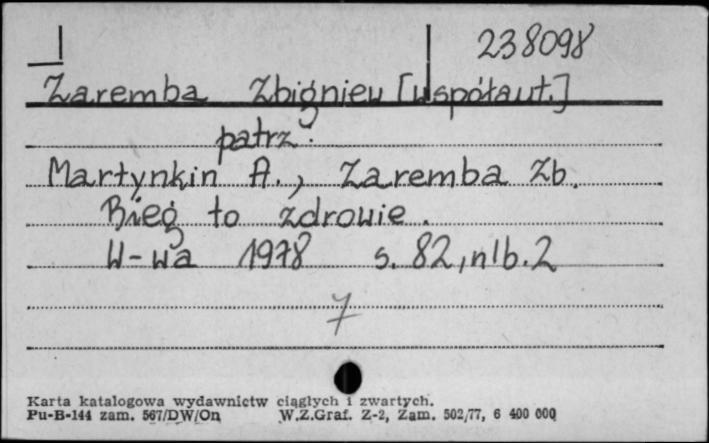 238098
Zaremba Zbigniew [współaut.]
patrz:
Martynkin A., Zaremba Zb.
Bieg to zdrowie.
W-wa 1978 s. 82, nlb. 2
7
Karta katalogowa wydawnictw ciągłych i zwartych.
Pu-B-144 zam. 567/DW/On W.Z.Graf. Z-2, Zam. 502/77, 6 400 000